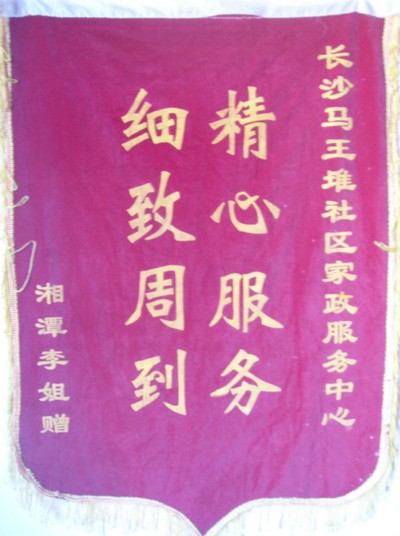 长沙马王堆社区家政服务中心
精心服务
细致周到
湘潭李姐赠